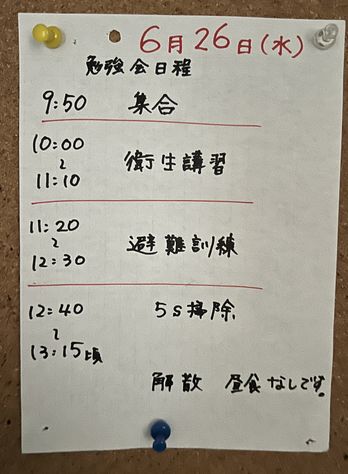 6月26日(水)
勉強会日程
9:50 集合
10:00
~
11:10
衛生講習
11:20
~
12:30
避難訓練
12:40
~
13:15頃
5S掃除
解散 昼食なしです。